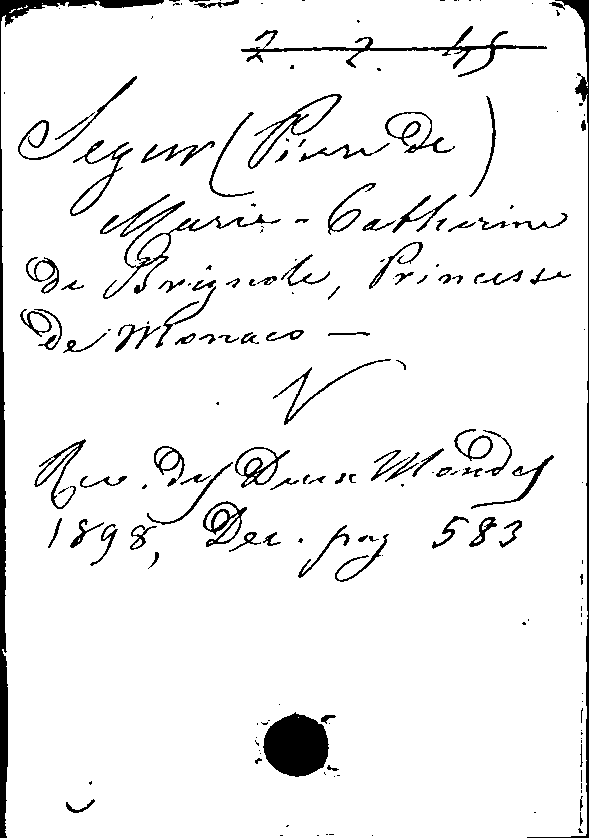 2. 2. 45
Segur (Pierre de)
Marie - Catherine
de Brignole, Princesse
de Monaco —
V
Rev. des Deux Mondes
1898, Dec. pag 583